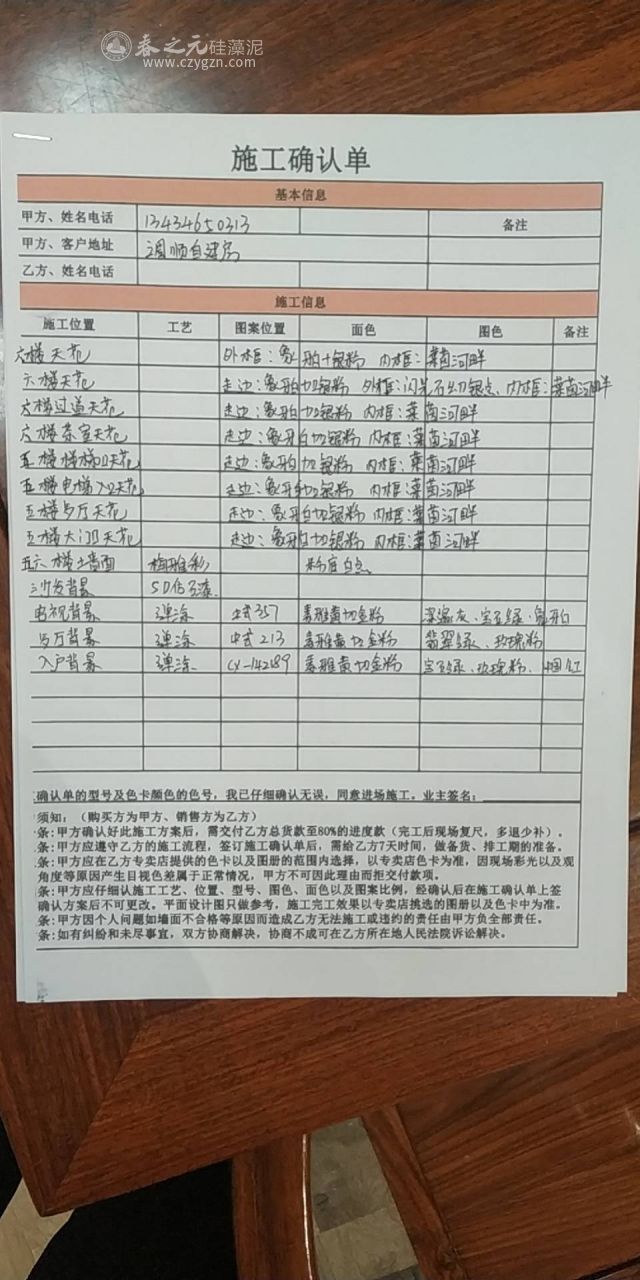 春之元硅藻泥
www.czygzn.com
施工确认单
基本信息
甲方、姓名电话 13434650313 备注
甲方、客户地址 调顺自建房
乙方、姓名电话
施工信息
施工位置 工艺 图案位置 面色 图色 备注
六楼天花 外框：象牙白+银粉 内框：莱茵河畔
六楼天花 走边：象牙白切银粉 外框：闪光石切银点、内框：莱茵河畔
六楼过道天花 走边：象牙白切银粉 内框：莱茵河畔
六楼茶室天花 走边：象牙白切银粉 内框：莱茵河畔
五楼楼梯口天花 走边：象牙白切银粉 内框：莱茵河畔
五楼电梯入口天花 走边：象牙白切银粉 内框：莱茵河畔
五楼与厅天花 走边：象牙白切银粉 内框：莱茵河畔
五楼大门口天花 走边：象牙白切银粉 内框：莱茵河畔
五六楼土墙面 梅雅彩
沙发背景 5D仿石漆
电视背景 弹涂 中式357 素雅黄切金粉 深编灰、宝石绿、象牙白
与厅背景 弹涂 中式213 素雅黄切金粉 翡翠绿、玫瑰粉
入户背景 弹涂 CX-142189 素雅黄切金粉 宝石绿、玫瑰粉、中国红
确认单的型号及色卡颜色的色号，我已仔细确认无误，同意进场施工。业主签名：
须知：（购买方为甲方、销售方为乙方）
条：甲方确认好此施工方案后，需交付乙方总货款至80%的进度款（完工后现场复尺，多退少补）。
条：甲方应遵守乙方的施工流程，签订施工确认单后，需给乙方7天时间，做备货、排工期的准备。
条：甲方应在乙方专卖店提供的色卡以及图册的范围内选择，以专卖店色卡为准，因现场彩光以及观
角度等原因产生目视色差属于正常情况，甲方不可因此理由而拒交付款项。
条：甲方应仔细认施工工艺、位置、型号、图色、面色以及图案比例，经确认后在施工确认单上签
确认方案后不可更改。平面设计图只做参考，施工完工效果以专卖店挑选的图册以及色卡中为准。
条：甲方因个人问题如墙面不合格等原因而造成乙方无法施工或违约的责任由甲方负全部责任。
条：如有纠纷和未尽事宜，双方协商解决，协商不成可在乙方所在地人民法院诉讼解决。